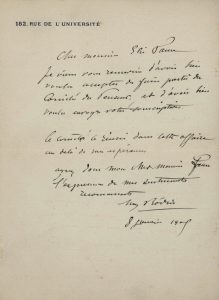 182, RUE DE L'UNIVERSITÉ
Cher monsieur Elie Faure
Je viens vous remercier d'avoir bien
voulu accepter de faire partie du
Comité du Penseur, et d'avoir bien
voulu envoyer votre souscription
le comité a réussi dans cette affaire
au delà de mes espérances
ayez donc mon cher Monsieur Faure
l'expression de mes sentiments
reconnaissants
Aug Rodin
8 janvier